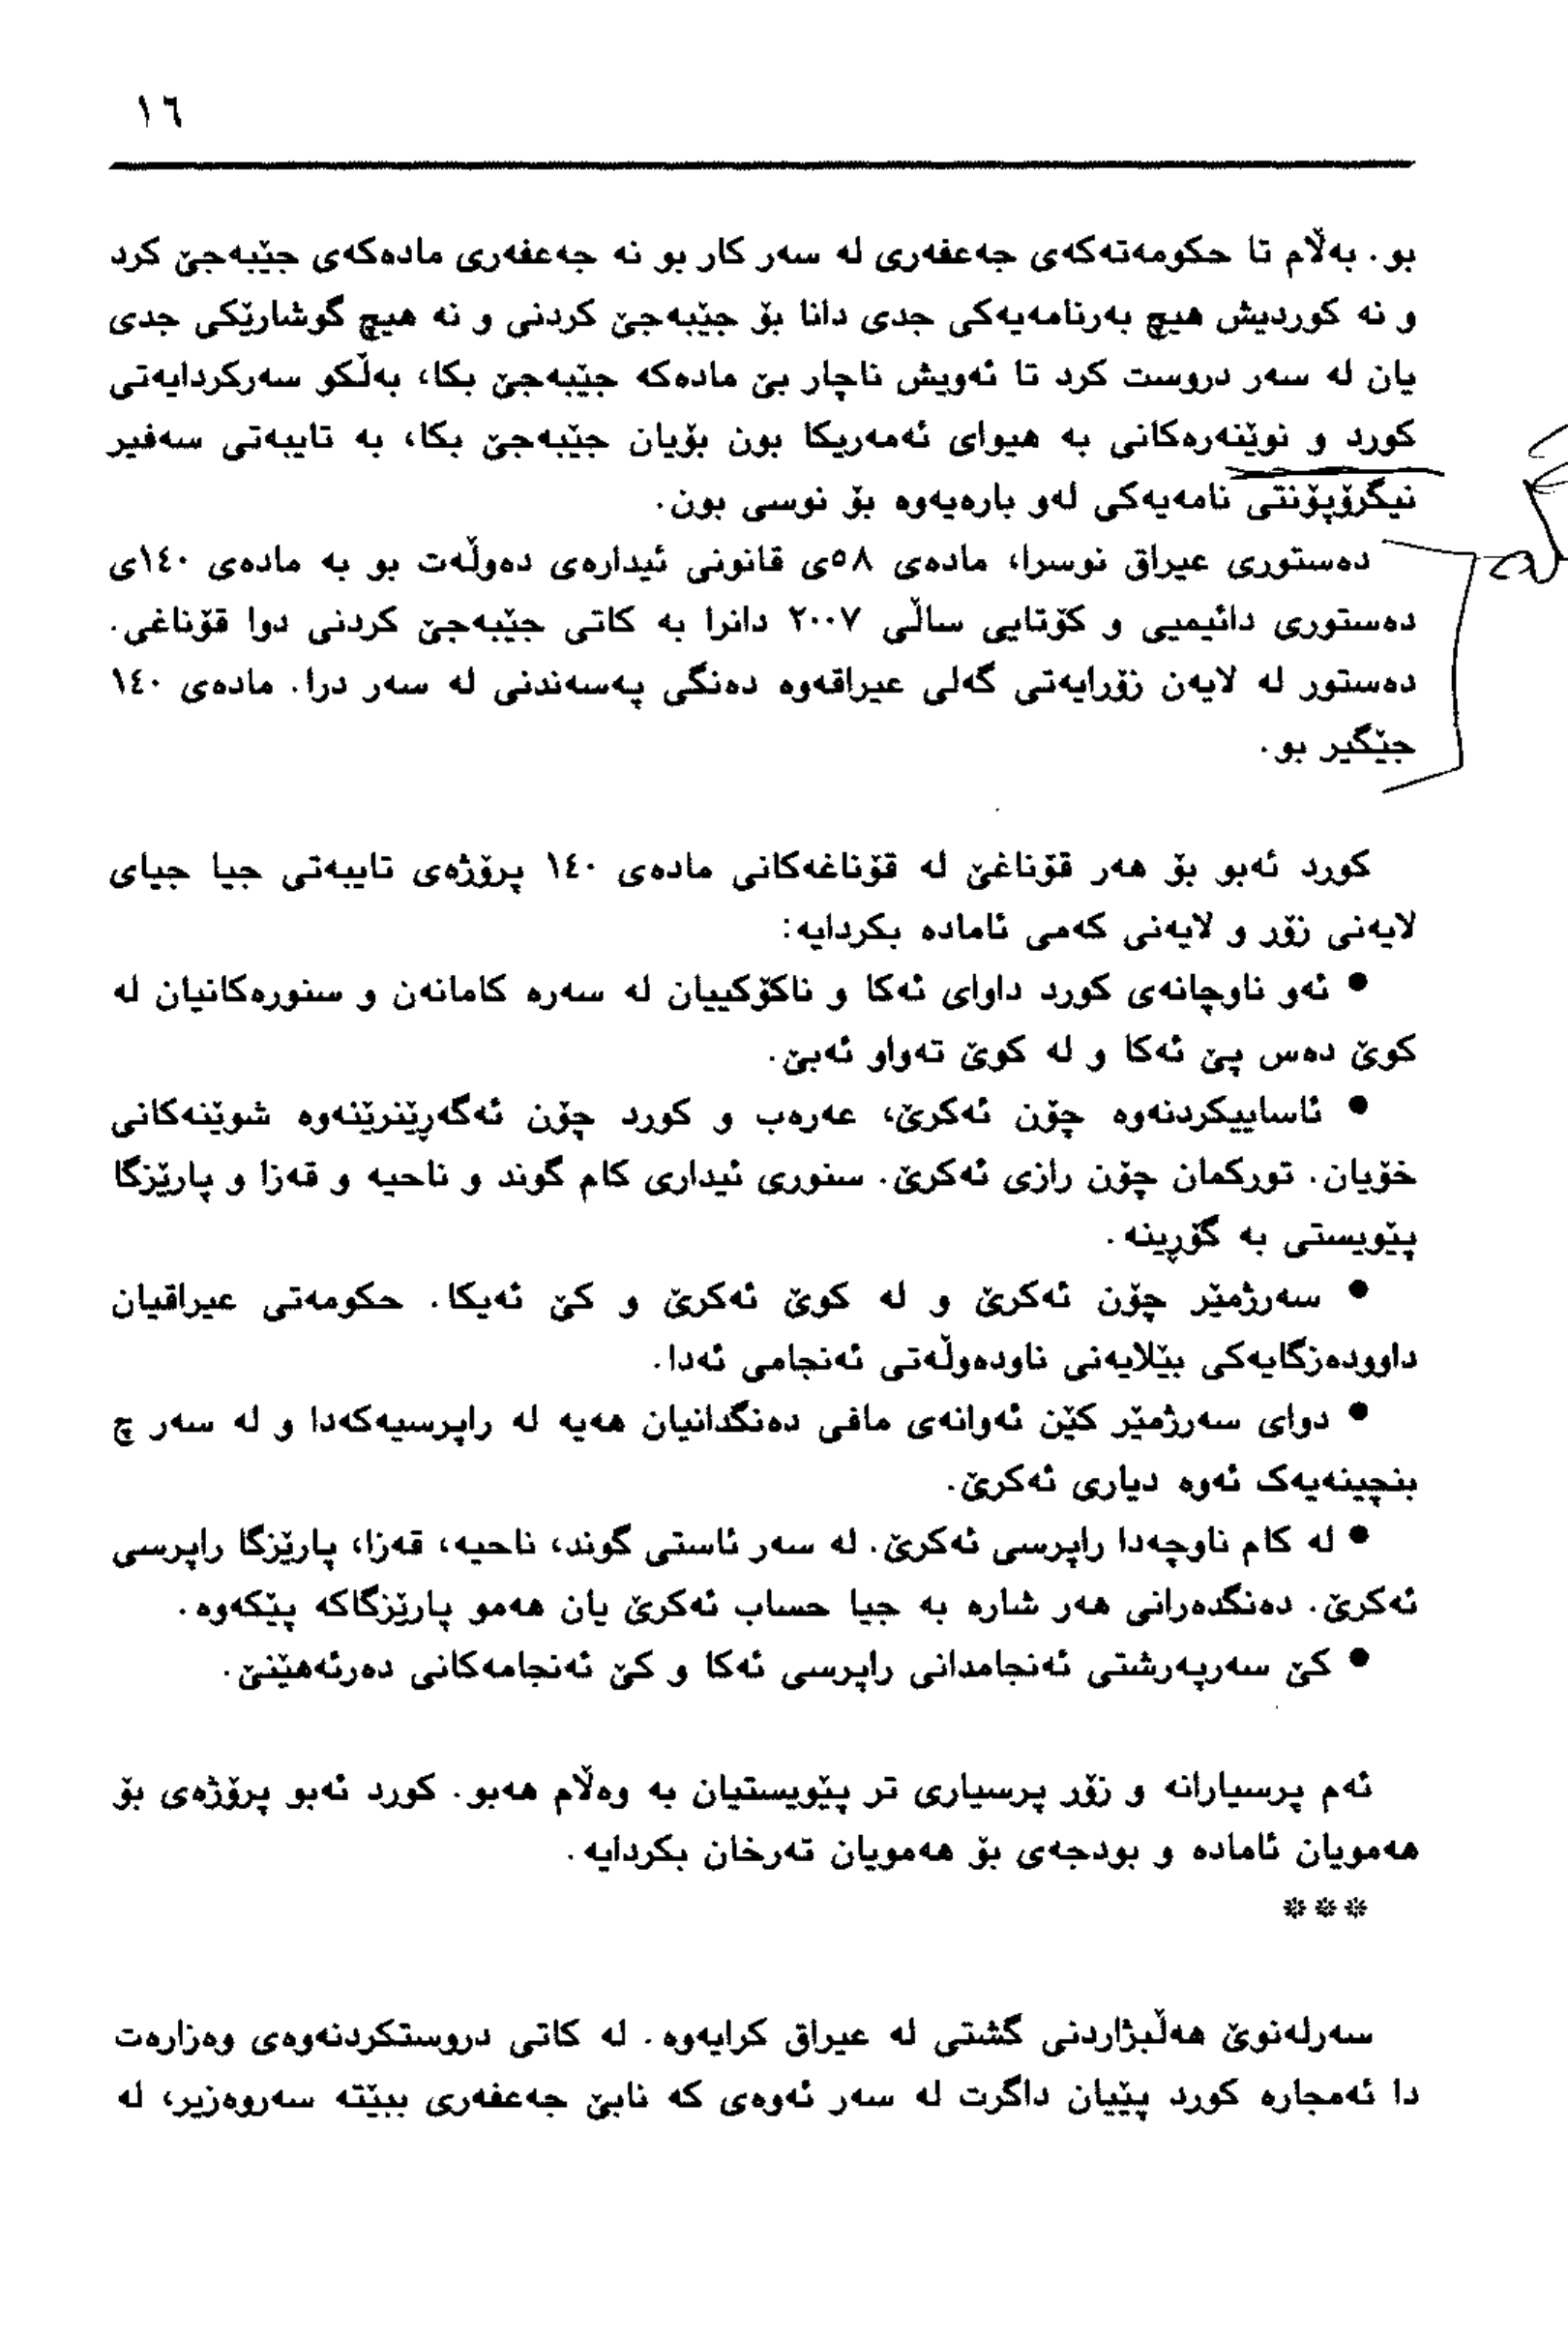 ١٦
بو. بەڵام تا حکومەتەکەی جەعفەری لە سەر کار بو نە جەعفەری مادەکەی جێبەجێ کرد
و نە کوردیش هیچ بەرنامەیەکی جدی دانا بۆ جێبەجێ کردنی و نە هیچ گوشارێکی جدی
یان لە سەر دروست کرد تا ئەویش ناچار بێ مادەکە جێبەجێ بکا، بەڵکو سەرکردایەتی
کورد و نوێنەرەکانی بە هیوای ئەمەریکا بون بۆیان جێبەجێ بکا، بە تایبەتی سەفیر
نیگرۆپۆنتی نامەیەکی لەو بارەیەوە بۆ نوسی بون.
دەستوری عیراق نوسرا، مادەی ٥٨ی قانونی ئیدارەی دەوڵەت بو بە مادەی ١٤٠ی
دەستوری دائیمیی و کۆتایی ساڵی ٢٠٠٧ دانرا بە کاتی جێبەجێ کردنی دوا قۆناغی.
دەستور لە لایەن زۆرایەتی گەلی عیراقەوە دەنگی پەسەندنی لە سەر درا. مادەی ١٤٠
جێگیر بو.
کورد ئەبو بۆ هەر قۆناغێ لە قۆناغەکانی مادەی ١٤٠ پرۆژەی تایبەتی جیا جیای
لایەنی زۆر و لایەنی کەمی ئامادە بکردایە:
● ئەو ناوچانەی کورد داوای ئەکا و ناکۆکییان لە سەرە کامانەن و سنورەکانیان لە
کوێ دەس پێ ئەکا و لە کوێ تەواو ئەبێ.
● ئاساییکردنەوە چۆن ئەکرێ، عەرەب و کورد چۆن ئەگەڕێنرێنەوە شوێنەکانی
خۆیان. تورکمان چۆن رازی ئەکرێ. سنوری ئیداری کام گوند و ناحیە و قەزا و پارێزگا
پێویستی بە گۆڕینە.
● سەرژمێر چۆن ئەکرێ و لە کوێ ئەکرێ و کێ ئەیکا. حکومەتی عیراقیان
داوودەزگایەکی بێلایەنی ناودەوڵەتی ئەنجامی ئەدا.
● دوای سەرژمێر کێن ئەوانەی مافی دەنگدانیان هەیە لە راپرسیەکەدا و لە سەر چ
بنچینەیەک ئەوە دیاری ئەکرێ.
● لە کام ناوچەدا راپرسی ئەکرێ. لە سەر ئاستی گوند، ناحیە، قەزا، پارێزگا راپرسی
ئەکرێ. دەنگدەرانی هەر شارە بە جیا حساب ئەکرێ یان هەمو پارێزگاکە پێکەوە.
● کێ سەرپەرشتی ئەنجامدانی راپرسی ئەکا و کێ ئەنجامەکانی دەرئەهێنێ.
ئەم پرسیارانە و زۆر پرسیاری تر پێویستیان بە وەڵام هەبو. کورد ئەبو پرۆژەی بۆ
هەمویان ئامادە و بودجەی بۆ هەمویان تەرخان بکردایە.
***
سەرلەنوێ هەڵبژاردنی گشتی لە عیراق کرایەوە. لە کاتی دروستکردنەوەی وەزارەت
دا ئەمجارە کورد پێیان داگرت لە سەر ئەوەی کە نابێ جەعفەری ببێتە سەروەزیر، لە